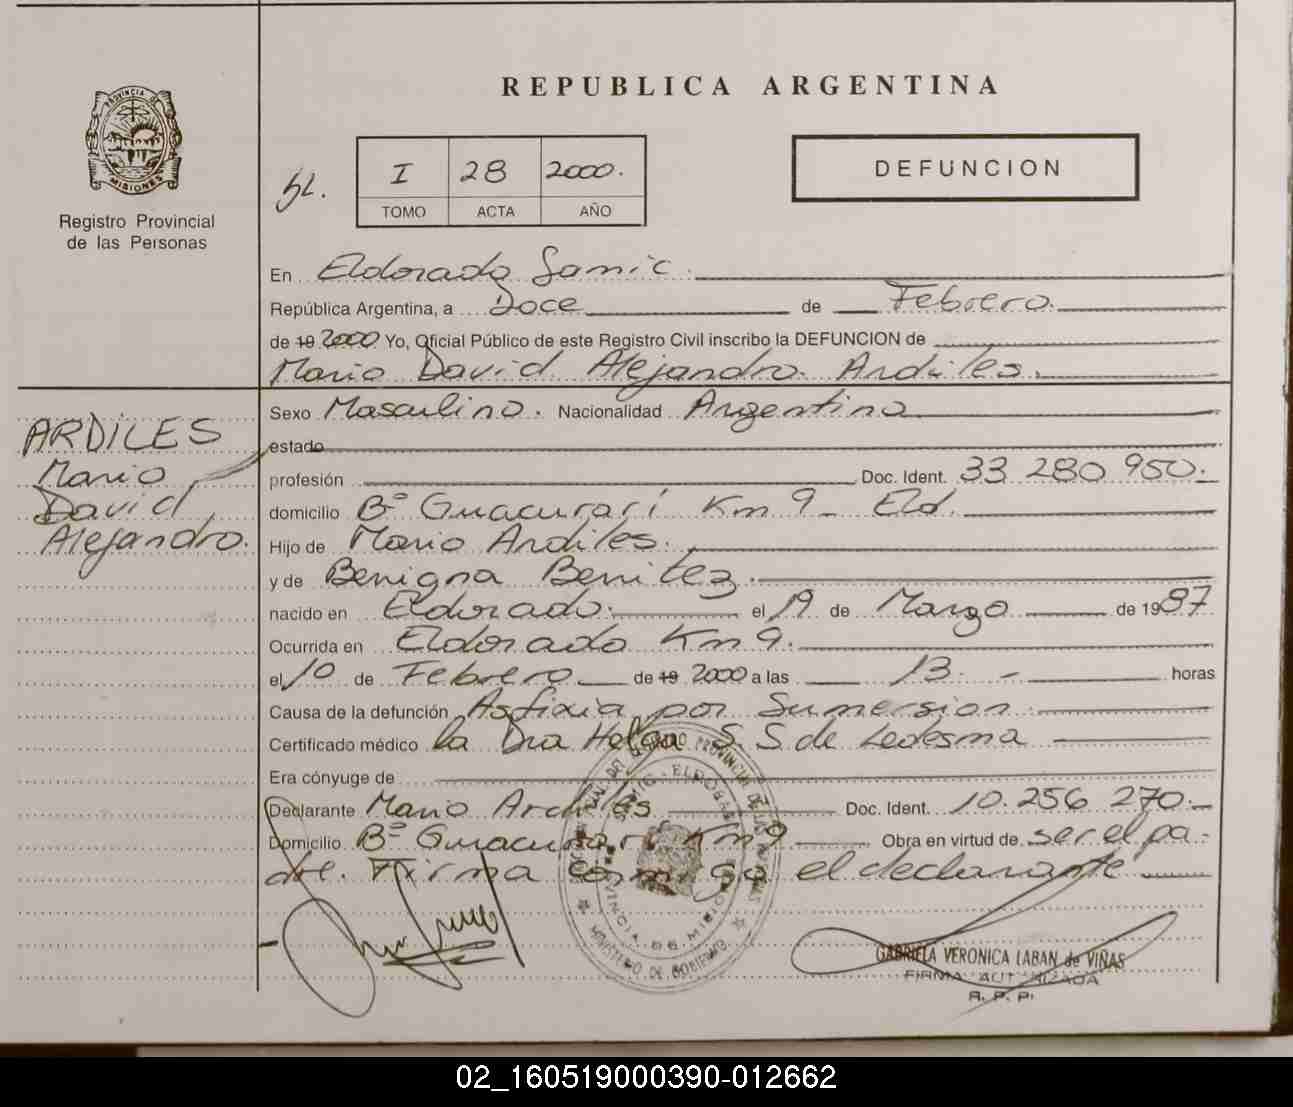 REPUBLICA ARGENTINA
PROVINCIA DE
MISIONES
Registro Provincial
de las Personas
I 28 2000.
TOMO ACTA AÑO
DEFUNCION
En Eldorado Samic.
República Argentina, a Doce de Febrero.
de 19 2000 Yo, Oficial Público de este Registro Civil inscribo la DEFUNCION de
Mario David Alejandro Ardiles.
ARDILES
Mario
David
Alejandro.
Sexo Masculino. Nacionalidad Argentina
estado
profesión Doc. Ident. 33 280 950.
domicilio Bº Guacurarí Km 9 - Eld.
Hijo de Mario Ardiles.
y de Benigna Benitez.
nacido en Eldorado. el 19 de Marzo de 1987
Ocurrida en Eldorado Km 9.
el 10 de Febrero de 19 2000 a las 13. - horas
Causa de la defunción Asfixia por Sumersion.
Certificado médico la Dra Helga S. S. de Ledesma
Era cónyuge de
Declarante Mario Ardiles Doc. Ident. 10.256 270.-
Domicilio Bº Guacurari Km 9 Obra en virtud de ser el pa-
dre. Firma conmigo el declarante
SAMIC - ELDORADO
PROVINCIA DE MISIONES
MINISTERIO DE GOBIERNO
GABRIELA VERONICA LABAN de VIÑAS
FIRMA AUTORIZADA
R. P. P.
02_160519000390-012662